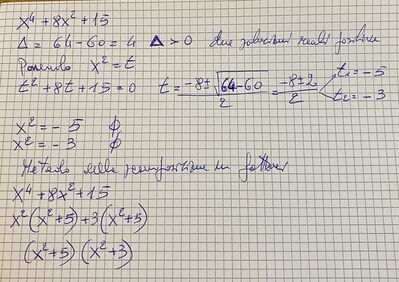 x⁴+8x²+15
Δ = 64-60=4 Δ>0 due soluzioni reali positive
Ponendo x²=t
t²+8t+15=0 t= -8±√64-60 / 2 = -8±2 / 2 t₁=-5 t₂=-3
x²=-5 ∅
x²=-3 ∅
Metodo della scomposizione in fattori
x⁴+8x²+15
x²(x²+5)+3(x²+5)
(x²+5)(x²+3)